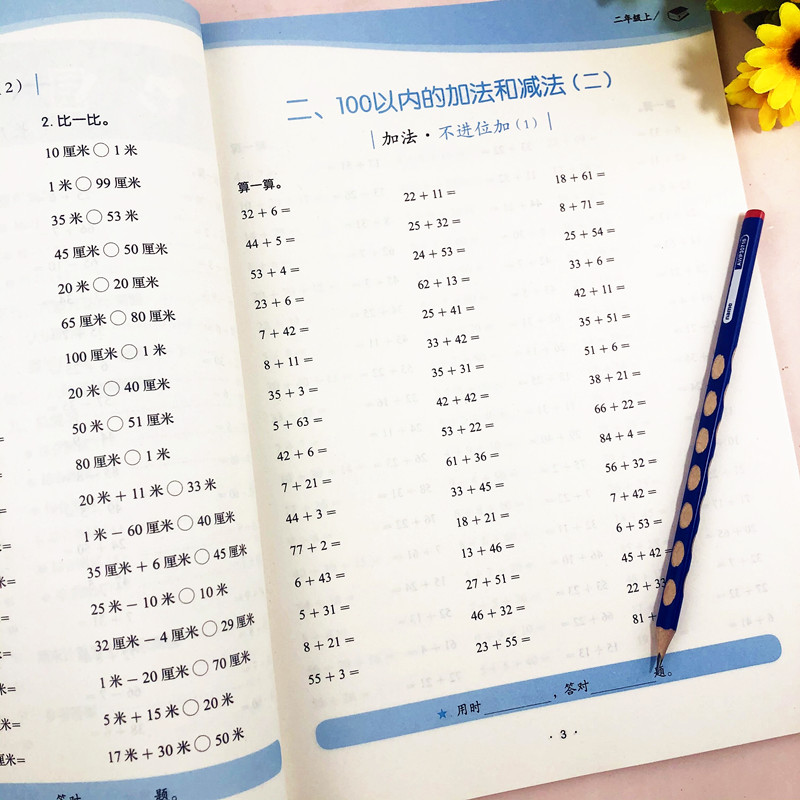 2）
2. 比一比。
10 厘米○1 米
1 米○99 厘米
35 米○53 米
45 厘米○50 厘米
20 米○20 厘米
65 厘米○80 厘米
100 厘米○1 米
20 米○40 厘米
50 米○51 厘米
80 厘米○1 米
20 米 + 11 米○33 米
1 米 − 60 厘米○40 厘米
35 厘米 + 6 厘米○45 厘米
25 米 − 10 米○10 米
32 厘米 − 4 厘米○29 厘米
1 米 − 20 厘米○70 厘米
5 米 + 15 米○20 米
17 米 + 30 米○50 米
答对 题。
二年级上
二、100以内的加法和减法（二）
加法·不进位加（1）
算一算。
32 + 6 =
44 + 5 =
53 + 4 =
23 + 6 =
7 + 42 =
8 + 11 =
35 + 3 =
5 + 63 =
42 + 6 =
7 + 21 =
44 + 3 =
77 + 2 =
6 + 43 =
5 + 31 =
8 + 21 =
55 + 3 =
22 + 11 =
25 + 32 =
24 + 53 =
62 + 13 =
25 + 41 =
33 + 42 =
35 + 31 =
42 + 42 =
53 + 22 =
61 + 36 =
33 + 45 =
18 + 21 =
13 + 46 =
27 + 51 =
46 + 32 =
23 + 55 =
18 + 61 =
8 + 71 =
25 + 54 =
33 + 6 =
42 + 11 =
35 + 51 =
51 + 6 =
38 + 21 =
66 + 22 =
84 + 4 =
56 + 32 =
7 + 42 =
6 + 53 =
45 + 42 =
22 + 33
81 +
★ 用时________，答对________题。
· 3 ·
name